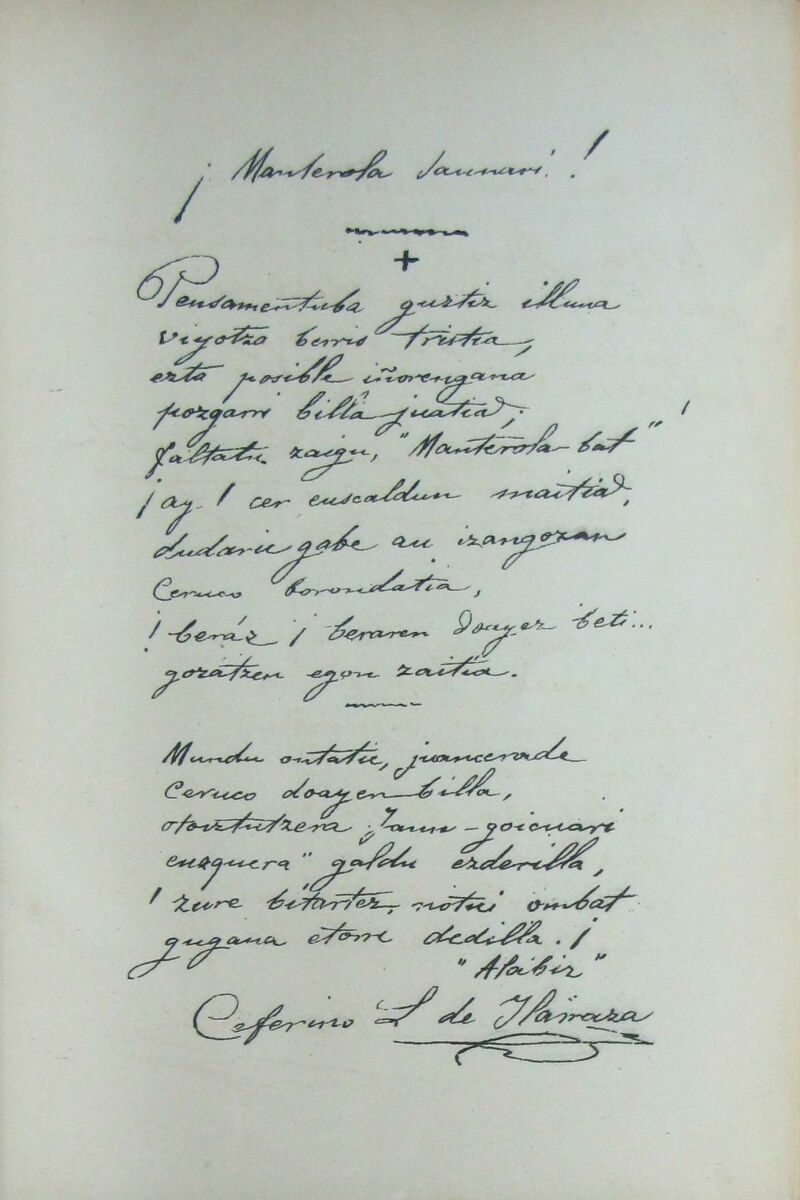 ¡ Manterola Jaunari. !
+
Pensamentuba guztiz illuna
viyotza berris tristia,
ezta posible iñorengana
pozgarri billa juatia,;
faltatu zaigu, "Manterola-bat" !
¡ ay. ! cer euscaldun maitia,
dudaric gabe au izangozan
Ceruco borondatia,
! beráz ¡ beraren doayez beti...
gozatzen egon zaitia.
Mundu ontatic, juancerade
Ceruco doayen billa,
otoiztutzera Jaun-goicuari
euzquera" galdu ezderilla,
! zure bitartez, ombat
gugana etorri dedilla. ¡
"Alabiz"
Ceferino L de Ilarraza